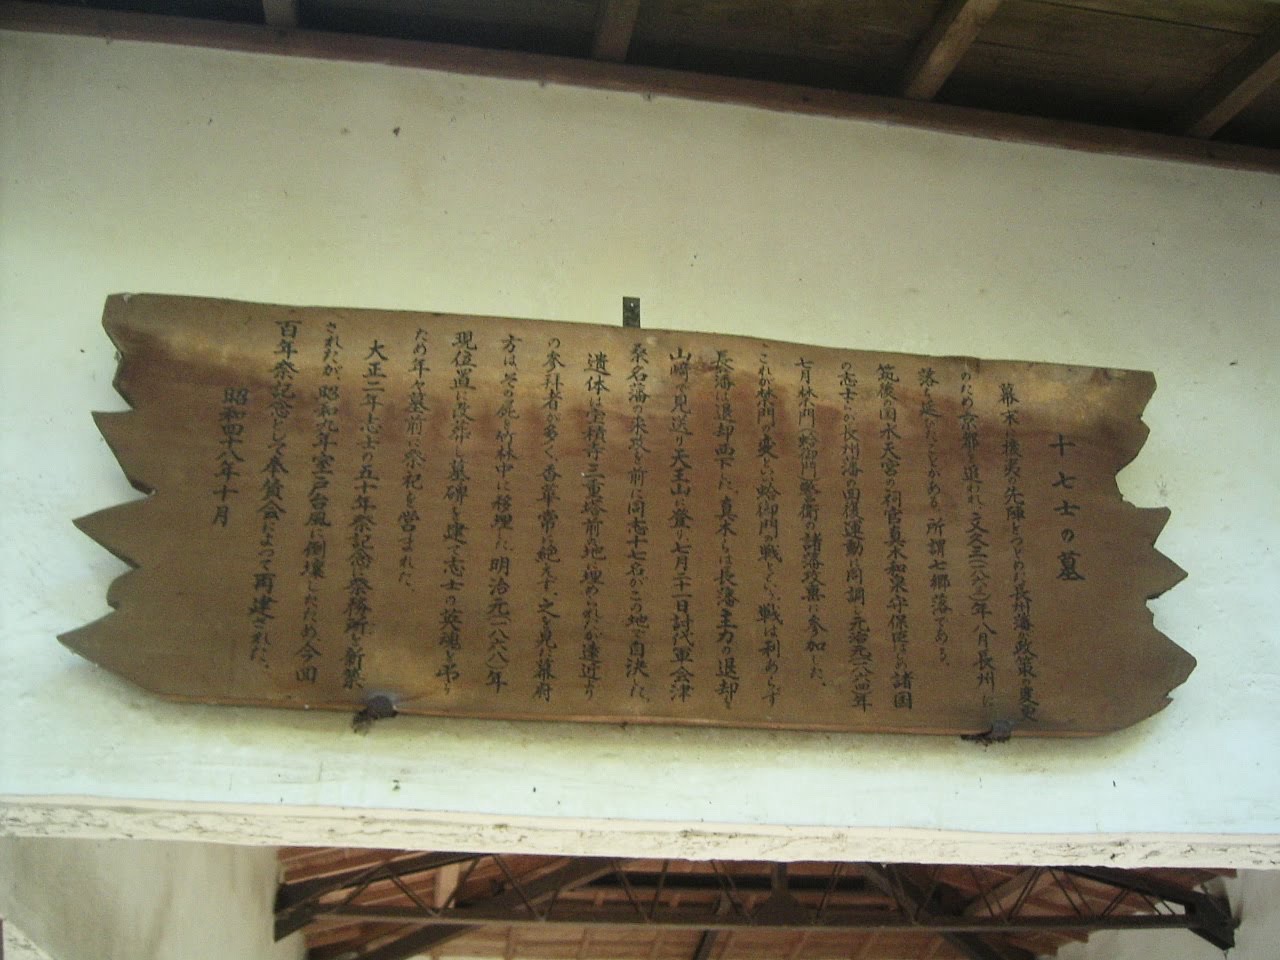 十七士の墓
幕末に攘夷の先陣をつとめた長州藩が政策の変更
のため京都を追われ文久三(一八六三)年八月長州に
落ち延びたことがある。所謂七郷落である。
筑後の国水天宮の祠官真木和泉守保臣はじめ諸国
の志士らが長州藩の回復運動に同調し元治元(一八六四)年
七月禁門(蛤御門)警衛の諸藩攻撃に参加した。
これが禁門の変といい蛤御門の戦という。戦は利あらず
長藩は退却西下した。真木らは長藩主力の退却を
山崎で見送り天王山に登り七月二十一日討伐軍会津
桑名藩の来攻を前に同志十七名がこの地で自決した。
遺体は宝積寺三重塔前の地に埋められたが遠近より
の参拝者が多く、香華常に絶えず、之を見た幕府
方は、その屍を竹林中に移埋した。明治元(一八六八)年
現位置に改葬し墓碑を建て志士の英魂を弔う
ため年々墓前に祭祀を営まれた。
大正二年志士の五十年祭記念に祭務所を新築
されたが、昭和九年室戸台風に倒壊したため今回
百年祭記念として奉賛会によって再建された。
昭和四十八年十月